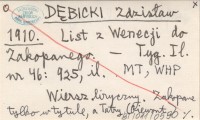 DĘBICKI Zdzisław
1910. List z Wenecji do
Zakopanego. — Tyg. Il.
nr 46: 925, il. MT, WHP
Wiersz liryczny. Zakopane
tylko w tytule, a Tatry (Giewont)